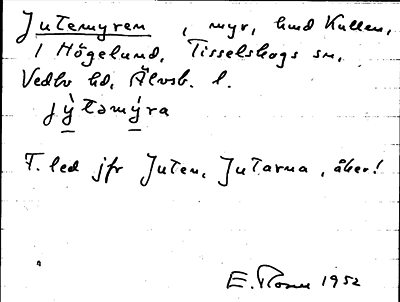 Jutemyren, myr, hmd Kullen,
1 Högelund, Tisselskogs sn,
Vedbo hd, Älvsb. l.
jỳtəmýra
F. led jfr Juten, Jutarna, åker!
E. 1952